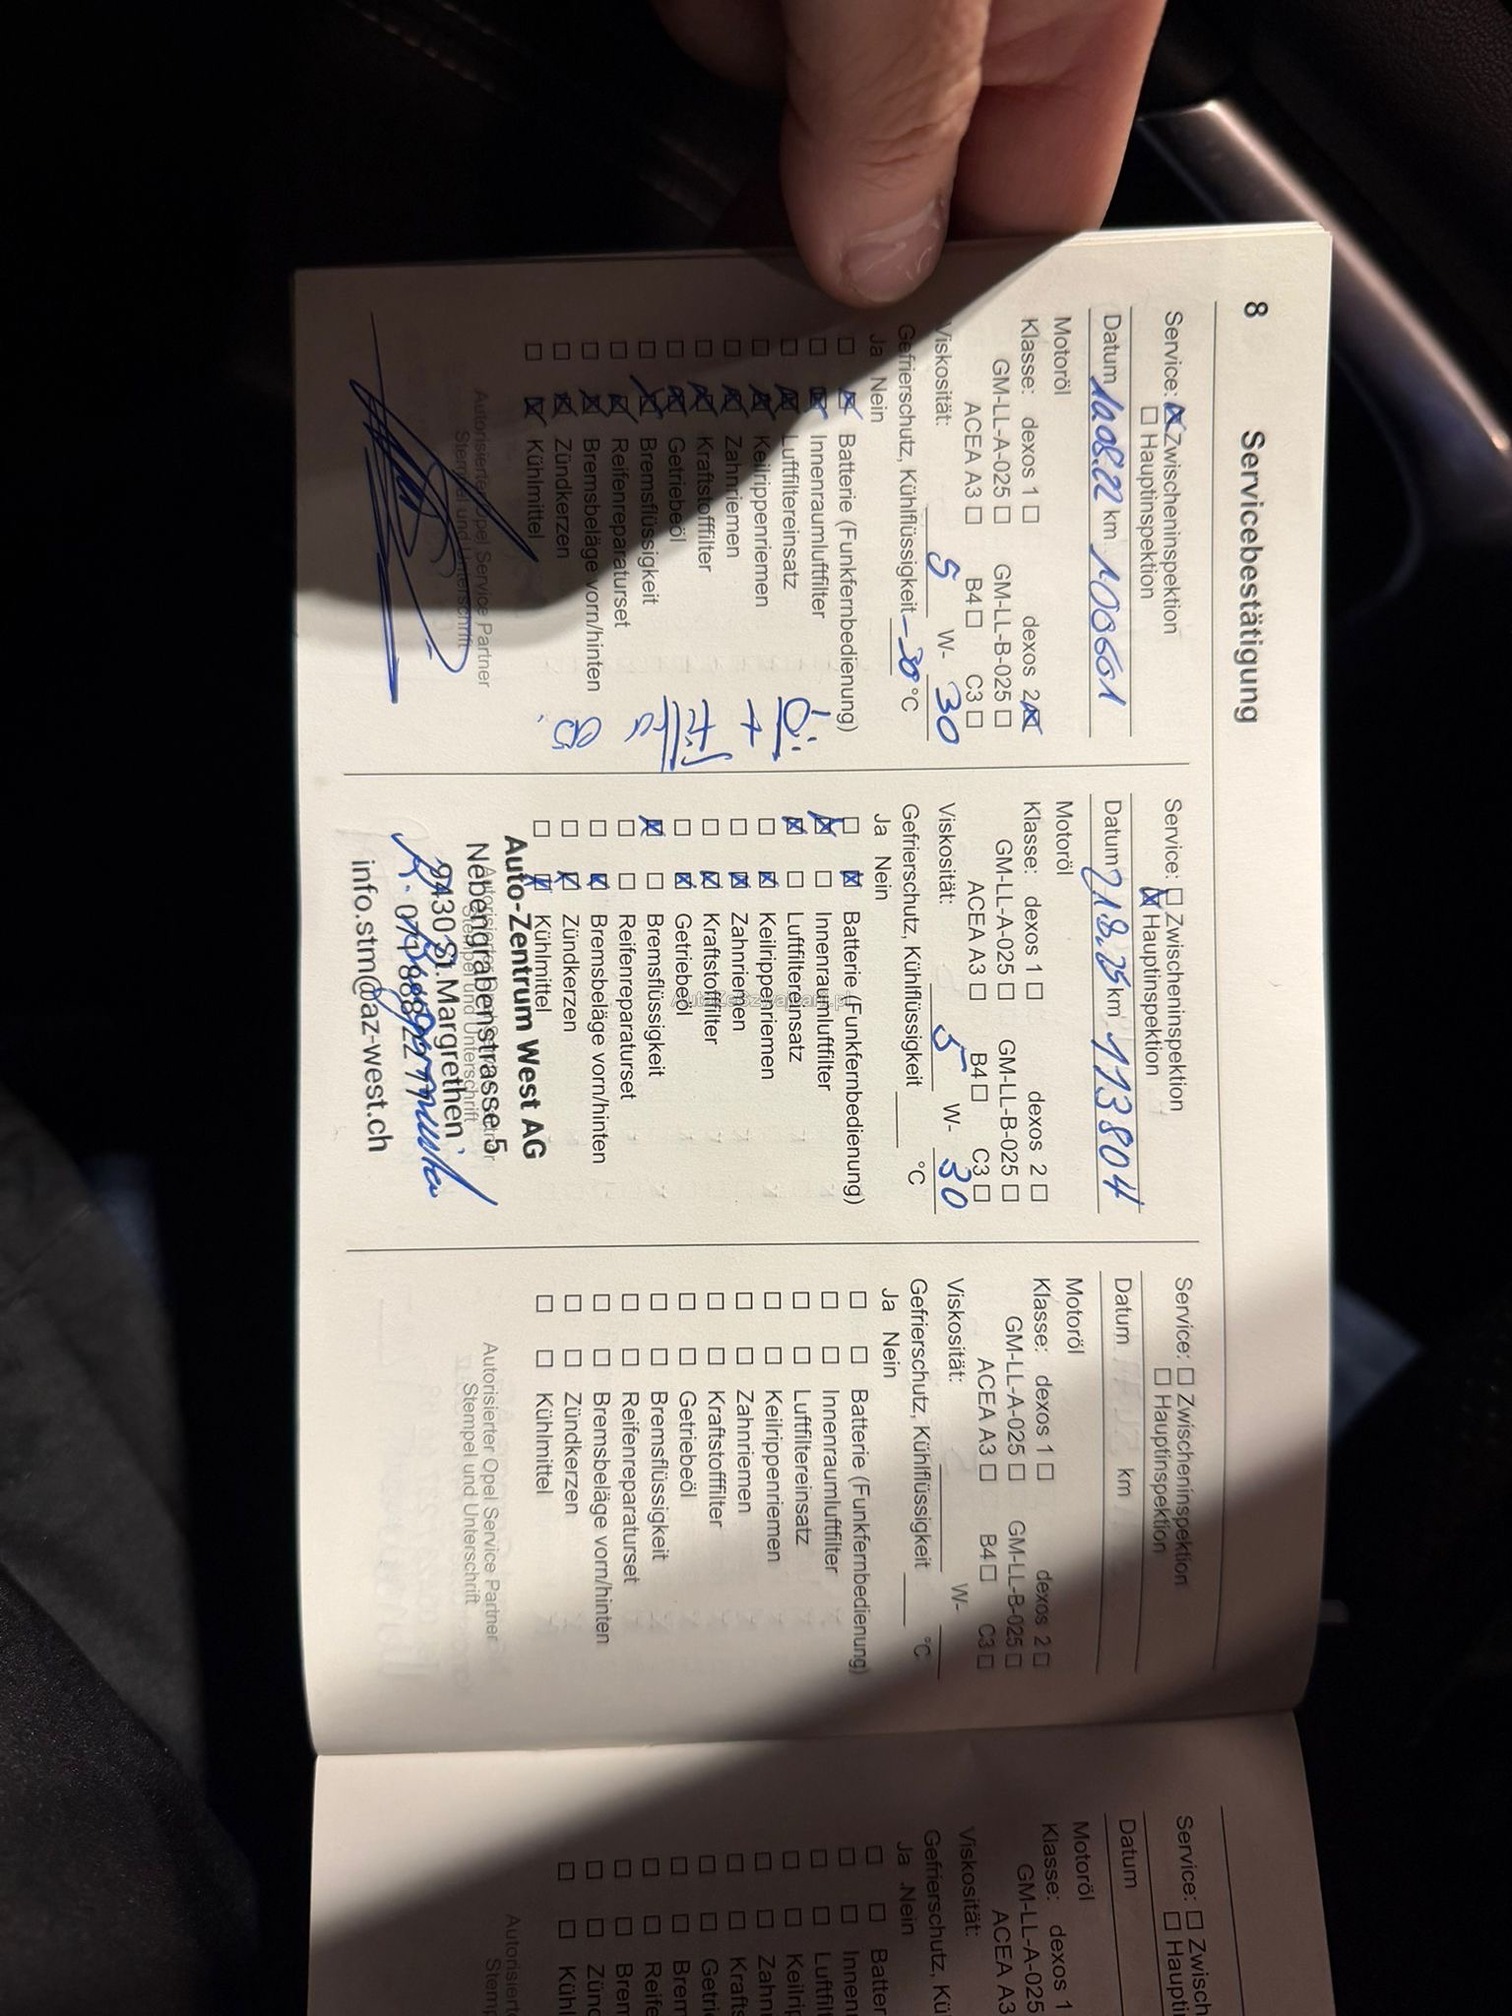 8 Servicebestätigung
Service: ☒ Zwischeninspektion
☐ Hauptinspektion
Datum 10.08.22 km 100661
Motoröl
Klasse: dexos 1 ☐ dexos 2 ☒
GM-LL-A-025 ☐ GM-LL-B-025 ☐
ACEA A3 ☐ B4 ☐ C3 ☐
Viskosität: 5 W- 30
Gefrierschutz, Kühlflüssigkeit -30 °C
Ja Nein
☐ ☒ Batterie (Funkfernbedienung)
☐ ☒ Innenraumluftfilter
☐ ☒ Luftfiltereinsatz
☐ ☒ Keilrippenriemen
☐ ☒ Zahnriemen
☐ ☒ Kraftstofffilter
☐ ☒ Getriebeöl
☐ ☒ Bremsflüssigkeit
☐ ☒ Reifenreparaturset
☐ ☒ Bremsbeläge vorn/hinten
☐ ☒ Zündkerzen
☐ ☒ Kühlmittel
Autorisierter Opel Service Partner
Stempel und Unterschrift
Service: ☐ Zwischeninspektion
☒ Hauptinspektion
Datum 21.8.25 km 113804
Motoröl
Klasse: dexos 1 ☐ dexos 2 ☐
GM-LL-A-025 ☐ GM-LL-B-025 ☐
ACEA A3 ☐ B4 ☐ C3 ☐
Viskosität: 5 W- 30
Gefrierschutz, Kühlflüssigkeit °C
Ja Nein
☐ ☒ Batterie (Funkfernbedienung)
☒ ☐ Innenraumluftfilter
☒ ☐ Luftfiltereinsatz
☐ ☒ Keilrippenriemen
☐ ☒ Zahnriemen
☐ ☒ Kraftstofffilter
☐ ☒ Getriebeöl
☒ ☐ Bremsflüssigkeit
☐ ☐ Reifenreparaturset
☐ ☒ Bremsbeläge vorn/hinten
☐ ☒ Zündkerzen
☐ ☒ Kühlmittel
Auto-Zentrum West AG
Nebengrabenstrasse 5
9430 St.Margrethen
info.stm@az-west.ch
Service: ☐ Zwischeninspektion
☐ Hauptinspektion
Datum km
Motoröl
Klasse: dexos 1 ☐ dexos 2 ☐
GM-LL-A-025 ☐ GM-LL-B-025 ☐
ACEA A3 ☐ B4 ☐ C3 ☐
Viskosität: W-
Gefrierschutz, Kühlflüssigkeit °C
Ja Nein
☐ ☐ Batterie (Funkfernbedienung)
☐ ☐ Innenraumluftfilter
☐ ☐ Luftfiltereinsatz
☐ ☐ Keilrippenriemen
☐ ☐ Zahnriemen
☐ ☐ Kraftstofffilter
☐ ☐ Getriebeöl
☐ ☐ Bremsflüssigkeit
☐ ☐ Reifenreparaturset
☐ ☐ Bremsbeläge vorn/hinten
☐ ☐ Zündkerzen
☐ ☐ Kühlmittel
Autorisierter Opel Service Partner
Stempel und Unterschrift
Service: ☐ Zwisch
☐ Haupti
Datum
Motoröl
Klasse: dexos 1
GM-LL-A-025
ACEA A3
Viskosität:
Gefrierschutz, Kü
Ja Nein
☐ ☐ Batter
☐ ☐ Innen
☐ ☐ Luftfil
☐ ☐ Keilrip
☐ ☐ Zahn
☐ ☐ Krafts
☐ ☐ Getri
☐ ☐ Brem
☐ ☐ Reife
☐ ☐ Brem
☐ ☐ Zünd
☐ ☐ Kühl
Autorisiert
Stemp